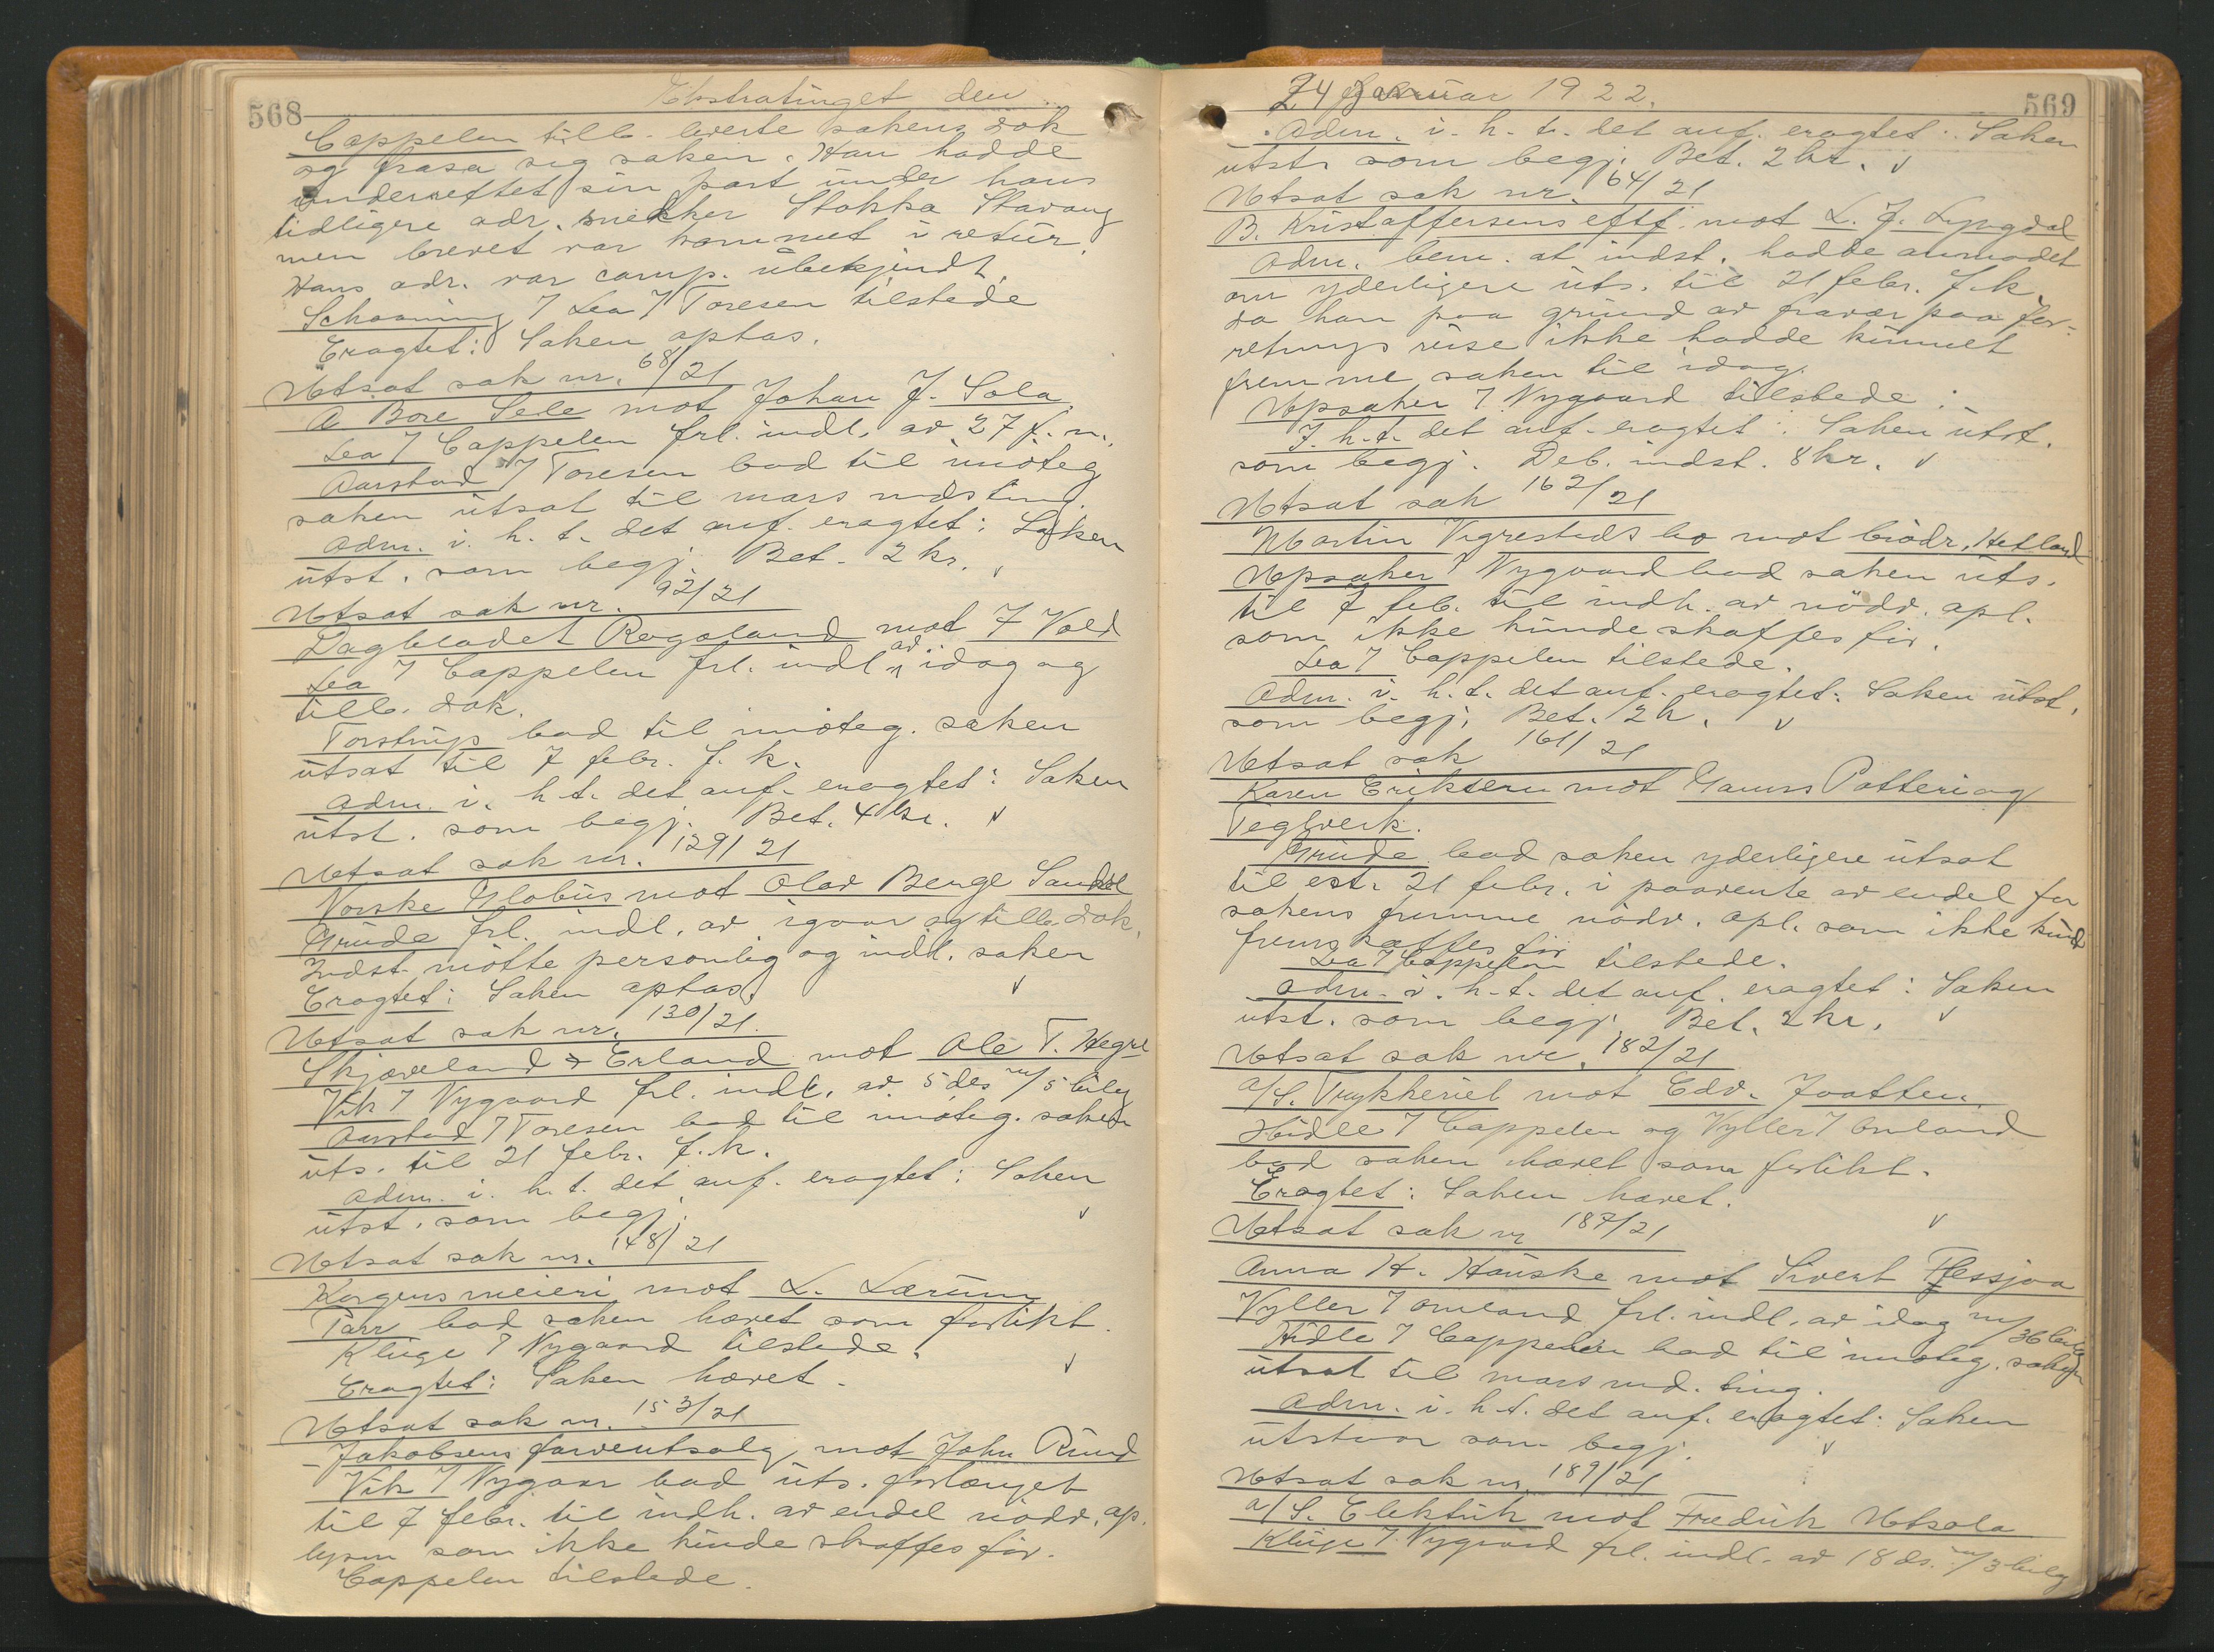 568
Ekstratinget den
Cappelen tillb. leverte sakens dok
og frasa sig saken. Han hadde
underrettet sin part under hans
tidligere adr. snedker Stokka Stavang
men brevet var kommet i retur.
Hans adr. var camp. ubekjendt.
Schaaning / Lea / Toresen tilstede
Eragtet: Saken optas.
Utsat sak nr. 68/21
A Bore Sele mot Johan J. Sola
Lea / Cappelen frl. indl. av 27 f. m.
Aarstad / Toresen bad til imøteg
saken utsat til mars mdsting.
Adm. i. h. t. det anf. eragtet: Saken
utst. som begj. Bet. 2 kr.
Utsat sak nr. 92/21
Dagbladet Rogaland mot J Vold
Lea / Cappelen frl. indl av idag og
tillb. dok.
Torstrup bad til imøteg. saken
utsat til 7 febr. f. k.
Adm. i. h. t. det anf. eragtet: Saken
utst. som begj. Bet. 4 kr.
Utsat sak nr. 129/21
Norske Globus mot Olav Berge Sandal
Grude frl. indl. av igaar og tillb. dok.
Indst. møtte personlig og indl. saken
Eragtet: Saken optas.
Utsat sak nr. 130/21.
Skjæveland & Erland mot Ole T. Hegre
Vik / Nygaard frl. indl. av 5 des m/5 bilag
Aarstad / Toresen bad til imøteg. saken
uts. til 21 febr. f. k.
Adm. i. h. t. det anf. eragtet: Saken
utst. som begj.
Utsat sak nr. 148/21
Korgens meieri mot L. Lærum
Parr bad saken hævet som forlikt.
Kluge / Nygaard tilstede.
Eragtet: Saken hævet.
Utsat sak nr. 153/21
Jakobsens farveutsalg mot John Rund
Vik / Nygaar bad uts. forlænget
til 7 febr. til indh. av endel nødv. op.
lysn som ikke kunde skaffes før.
Cappelen tilstede.
24 januar 1922.
569
Adm. i. h. t. det anf. eragtet: Saken
utstr som begj. Bet. 2 kr.
Utsat sak nr. 64/21
B. Kristoffersens eftf. mot L. J. Lyngdal
Adm. bem. at indst. hadde anmodet
om yderligere uts. til 21 febr. f. k
da han paa grund av fravær paa for-
retnings reise ikke hadde kunnet
fremme saken til idag.
Opsaker / Nygaard tilstede.
I. h. t. det anf. eragtet: Saken utst.
som begj. Deb. indst. 8 kr.
Utsat sak 162/21
Martin Vigresteds bo mot brødr. Hetland
Opsaker / Nygaard bad saken uts.
til 7 feb. til indh. av nødv. opl.
som ikke kunde skaffes før.
Lea / Cappelen tilstede.
Adm. i. h. t. det anf. eragtet: Saken utst.
som begj. Bet. 2 k.
Utsat sak 161/21
Karen Eriksen mot Ganns Potteri og
Teglverk.
Grude bad saken yderligere utsat
til est. 21 febr. i paavente av endel for
sakens fremme nødv. opl. som ikke kund
fremskaffes før
Lea / Cappelen tilstede.
Adm. i. h. t. det anf. eragtet: Saken
utst. som begj. Bet. 2 kr.
Utsat sak nr. 182/21
A/S. Trykkeriet mot Edv. Joatten.
Hidle / Cappelen og Vyller / Omland
bad saken hævet som forlikt.
Eragtet: Saken hævet.
Utsat sak nr 187/21
Anna H. Hauske mot Sivert Flessjaa
Vyller / Omland frl. indl. av idag m/36 bilag
Hidle / Cappelen bad til imøteg. saken
utsat til mars md. ting.
Adm. i. h. t. det anf. eragtet: Saken
utstaar som begj.
Utsat sak nr. 189/21
A/S. Elektrik mot Fredrik Utsola
Kluge / Nygaard frl. indl. av 18 ds. m/3 bilg